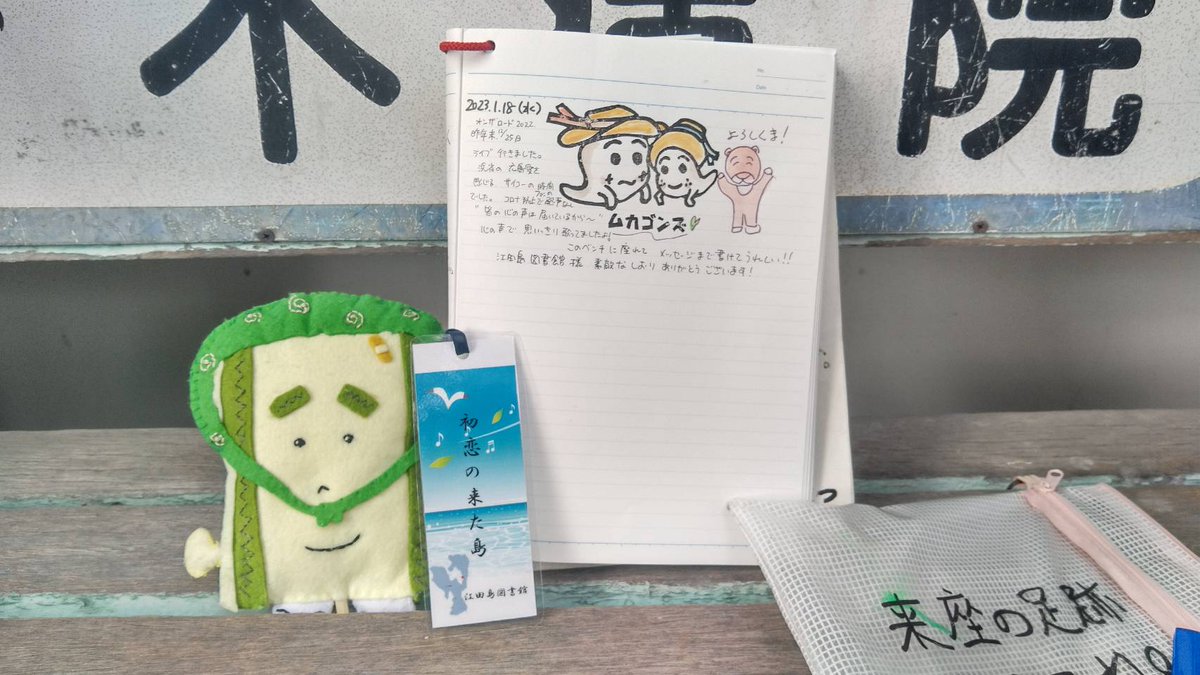 木
院
No.
Date
2023.1.18(水)
オンザロード2022
昨年末12/25日
ライブ行きました。
浜省の広島愛を
感じる サイコーの時間
でした。コロナ対応で歓声なし
"皆の心の声は届いているから〜"
心の声で思いっきり歌ってましたよ!
よろしくま!
ムカゴンズ
このベンチに座れて メッセージまで書けてうれしい!!
江田島図書館様 素敵なしおりありがとうございます!
初恋の来た島
江田島図書館
来座の足跡